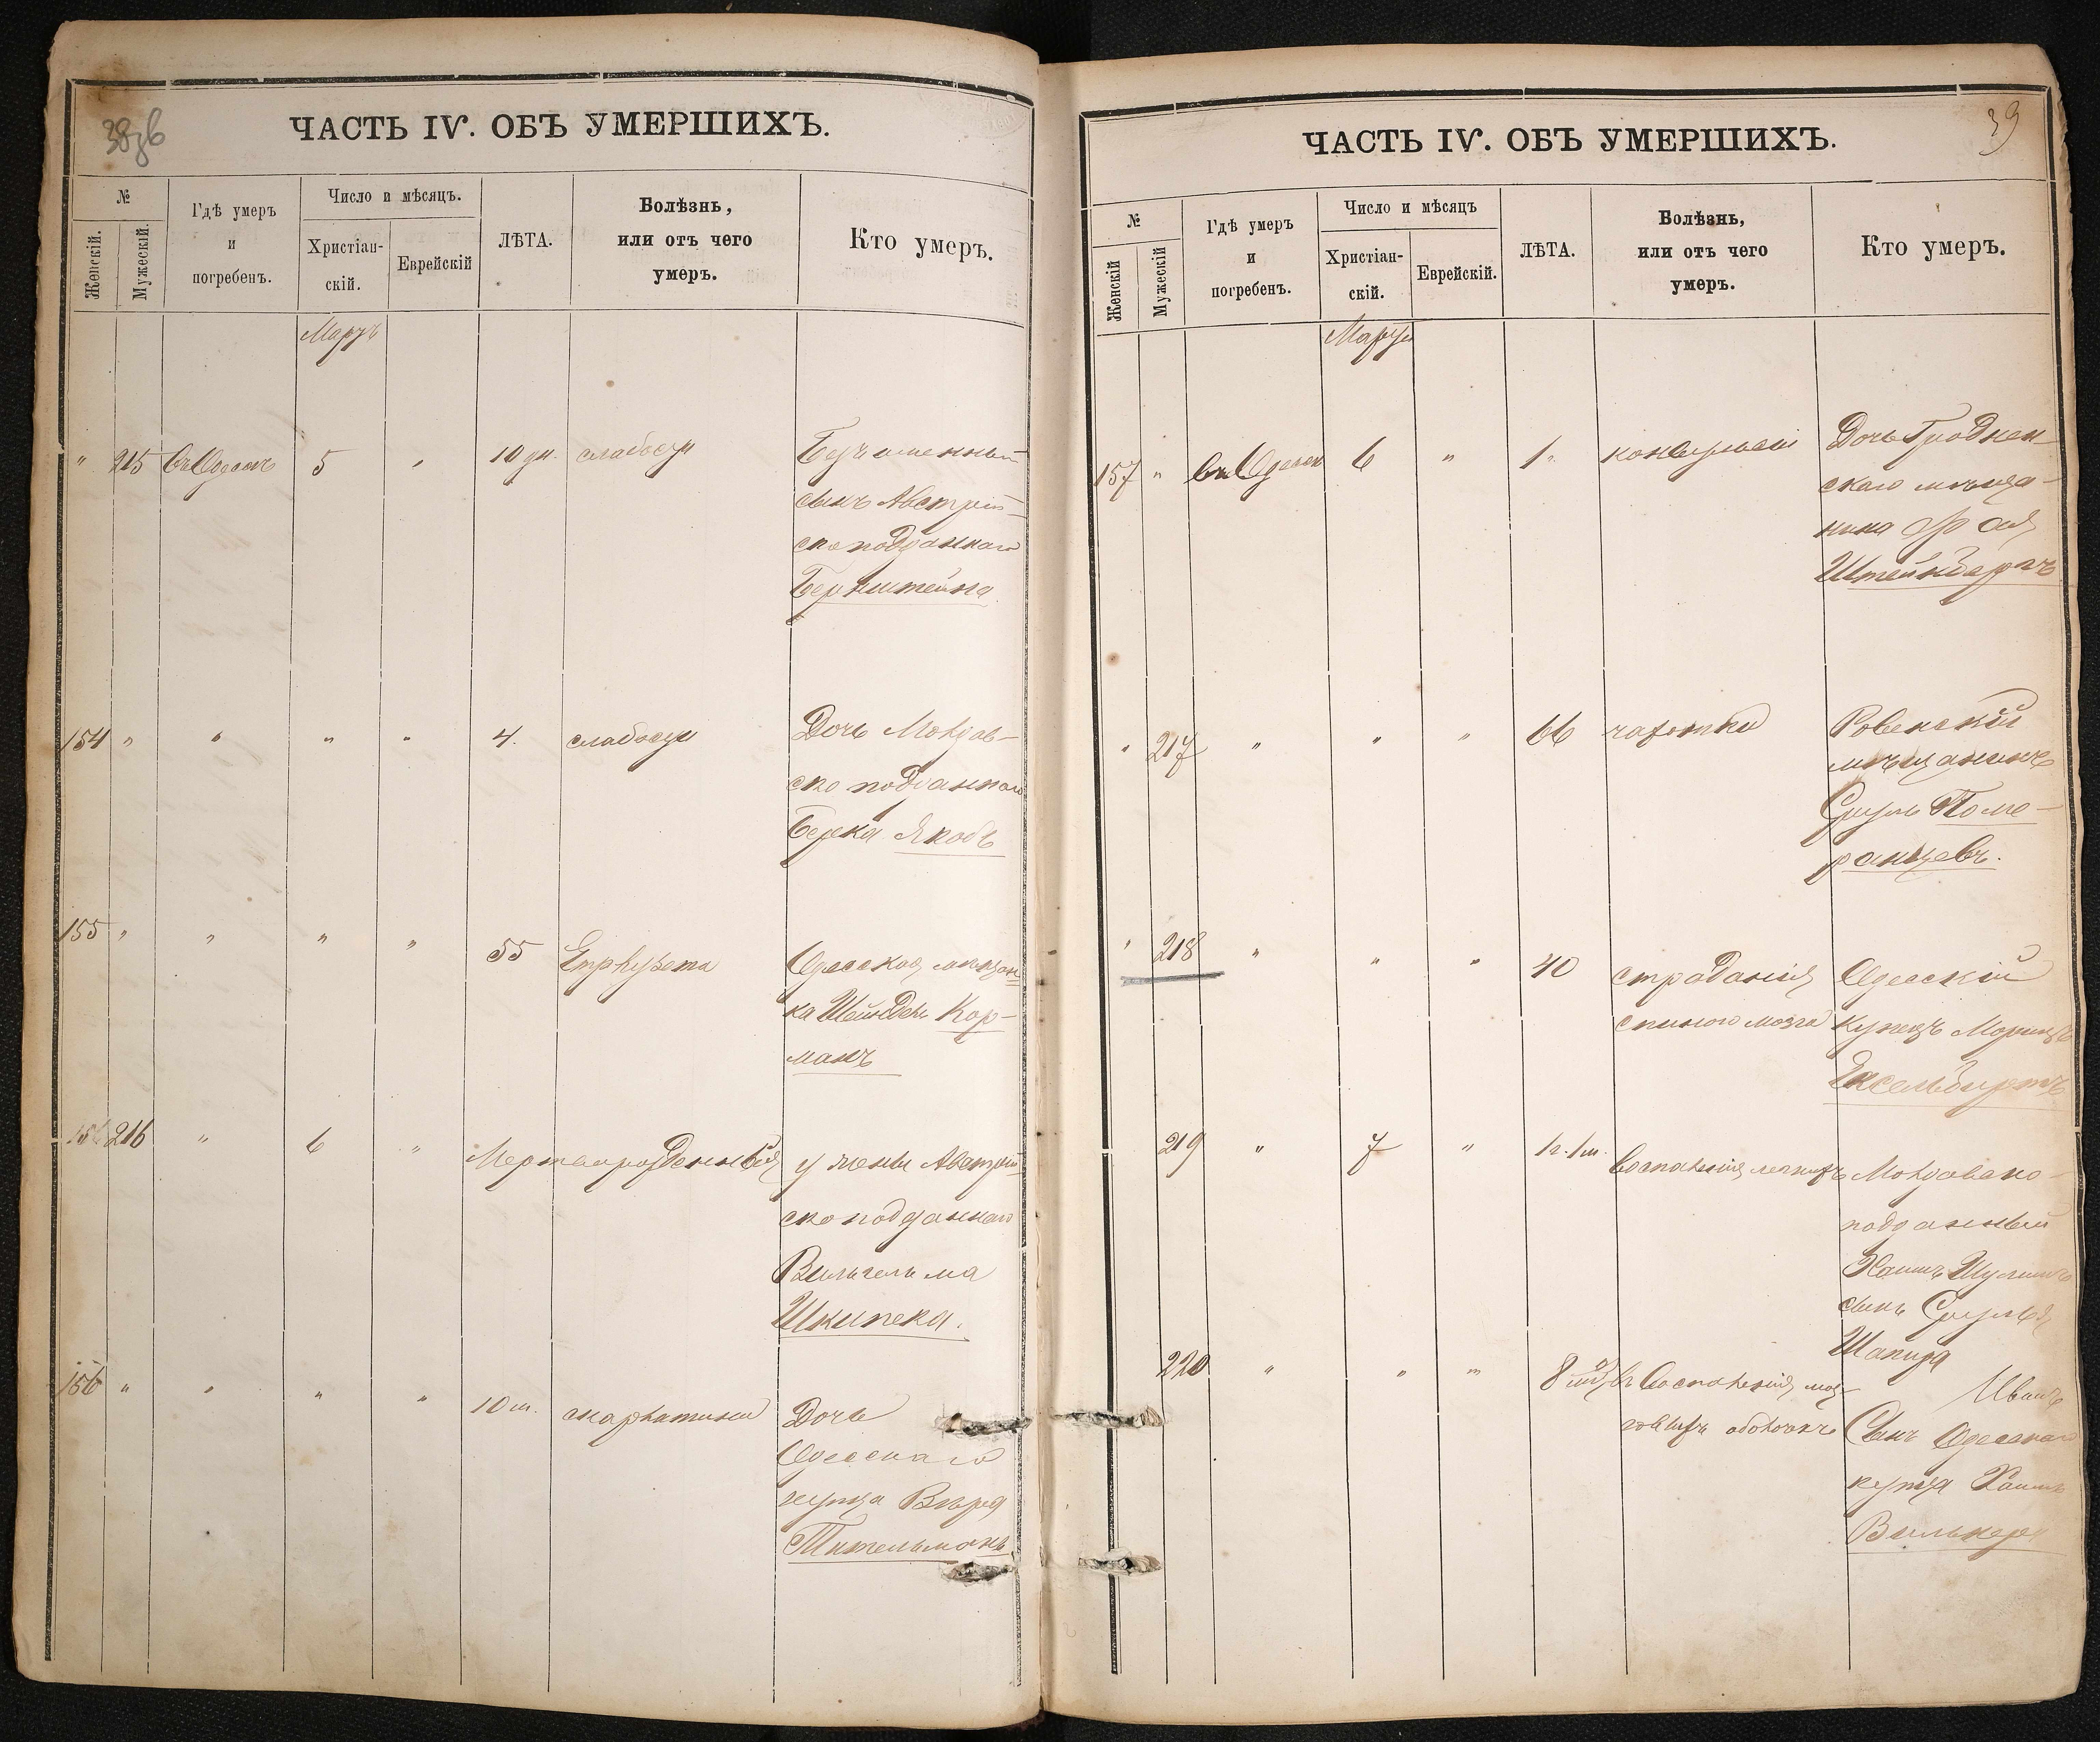 ЧАСТЬ IV. ОБЪ УМЕРШИХЪ.
№
Женскій.
Мужескій.
Гдѣ умеръ
и
погребенъ.
Число и мѣсяцъ.
Христіан-
скій.
Еврейскій
ЛѢТА.
Болѣзнь,
или отъ чего
умеръ.
Кто умеръ.
Мартъ
" 215 въ Одессѣ 5 " 10 дн. слабости
сынъ Австрій-
скоподданнаго
Бернштейна
154 " " " " 4. слабости Дочь Молдав-
ско подданнаго
Берека Якобъ
155 " " " " 55 Одесская мѣщан-
ка Шейндель Кор-
манъ
216 " 6 " Мертворожденный у жены Австрій-
скоподданнаго
Вильгельма
Шкипека.
156 " " " " 10 м. скарлатины Дочь
Одесскаго
купца
Тительманъ
ЧАСТЬ IV. ОБЪ УМЕРШИХЪ.
39
№
Женскій
Мужескій
Гдѣ умеръ
и
погребенъ.
Число и мѣсяцъ
Христіан-
скій.
Еврейскій.
ЛѢТА.
Болѣзнь,
или отъ чего
умеръ.
Кто умеръ.
Марта
157 " въ Одессѣ 6 " 1 Дочь Гроднен-
скаго мѣща-
нина
Штейнбергъ
" 217 " " " 66 чахотки Ровенскій
мѣщанинъ
Сруль Поме-
ранцевъ.
" 218 " " " 40 страданія Одесскій
спиного мозга купецъ Морицъ
Ексельбиртъ
219 " 7 " 1 г. 1 м. воспаленія легкихъ Молдавско-
подданный
Хаимъ Шулимъ
сынъ Сруля
Шапира
220 " " " 8 воспаленія моз-
говыхъ оболочекъ Сынъ Одесскаго
купца Хаимъ